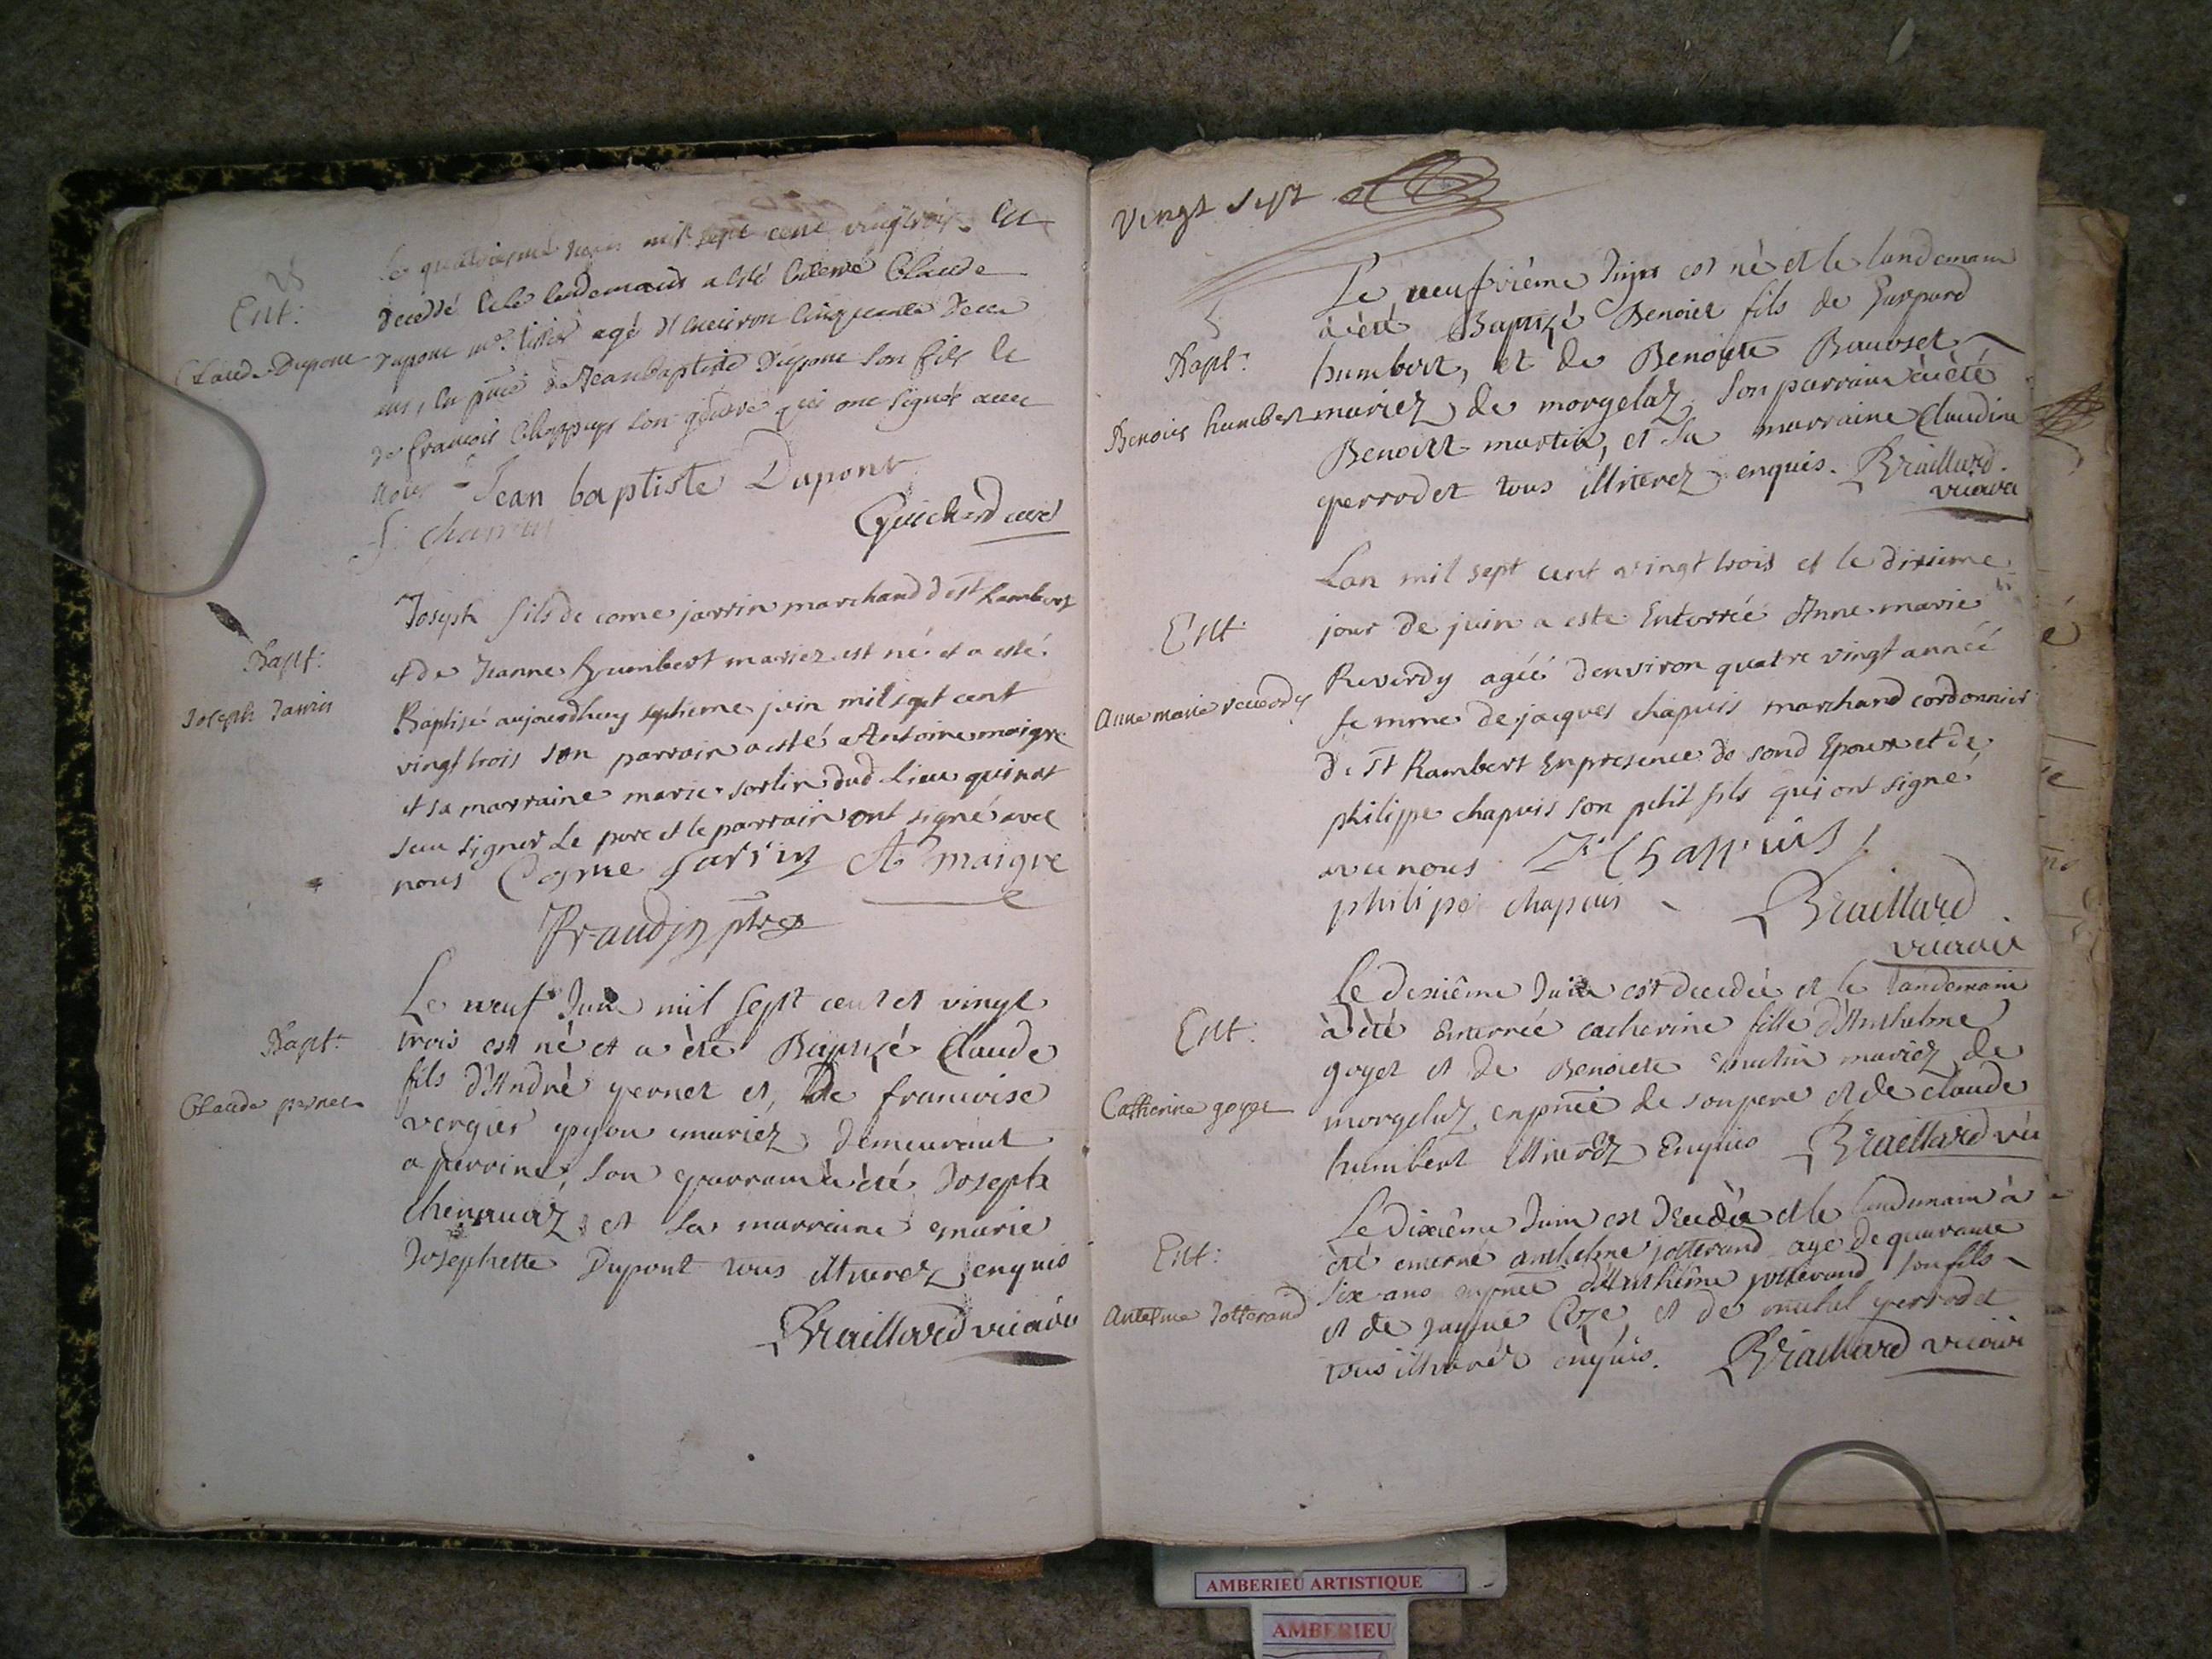 Ent:
Claude Dupont
Le quatrieme juin mil sept cent vingt trois. Est
decedé et le lendemain a esté enterré Claude
Dupont m.e tissier agé d'environ cinquante deux
ans, en pnce de Jean baptiste Dupont son fils et
de francois Chappuys son gendre qui ont signés avec
nous Jean baptiste Dupont
Guichard curé
Bapt:
Joseph Jarrin
Joseph fils de come jarrin marchand de st Rambert
et de Jeanne humbert mariez est né et a esté
Baptisé aujourdhuy septieme juin mil sept cent
vingt trois son parrain a esté Antoine maigre
et sa marraine marie sorlin dud lieu qui n'ont
seu signer le pere et le parrain ont signé avec
nous Cosme Jarrin A maigre
Bapt:
Claude pernet
Le neuf Juin mil sept cent et vingt
trois est né et a èté Baptizé Claude
fils d'André pernet et, de francoise
vergier mariéz demeurant
a son parrain à été Joseph
et sa marraine marie
Josephette Dupont tous illiterez enquis
Braillard vicaire
vingt sept
Bapt:
Benoist humbert
Le neufvième Juin est né et le landemain
à èté Baptizé Benoist fils de Gaspard
humbert, et de Benoite
mariez de morgelaz, son parrain à èté
Benoist martin, et sa marraine Claudine
perrodet tous illiterez enquis. Braillard.
vicaire
Ent.
Anne marie reverdy
Lan mil sept cent vingt trois et le dixieme
jour de juin a este Enterrée Anne marie
Reverdy agée denviron quatre vingt année
femme de jacques chapuis marchand cordonnier
de St Rambert En presence de sond Epoux et de
philippe chapuis son petit fils qui ont signé
avec nous Chappuis
philipe chapuis Braillard
vicaire
Ent:
Catherine goyet
Le dixiême Juin est decedée et le landemain
à èté Enterrée catherine fille d'Anthelme
goyet et de Benoiste mariez de
morgelaz, en pnce de son pere et de claude
humbert illiterez Enquis Braillard vic
Ent:
Antelme Jotterand
Le dixiême Juin est decedé et le landemain à
èté enterré anthelme jotterand agé de quarante
six ans en pnce d'Anthelme jotterand son fils
et de et de michel perrodet
tous illiteréz enquis. Braillard vicaire
AMBERIEU ARTISTIQUE
AMBERIEU